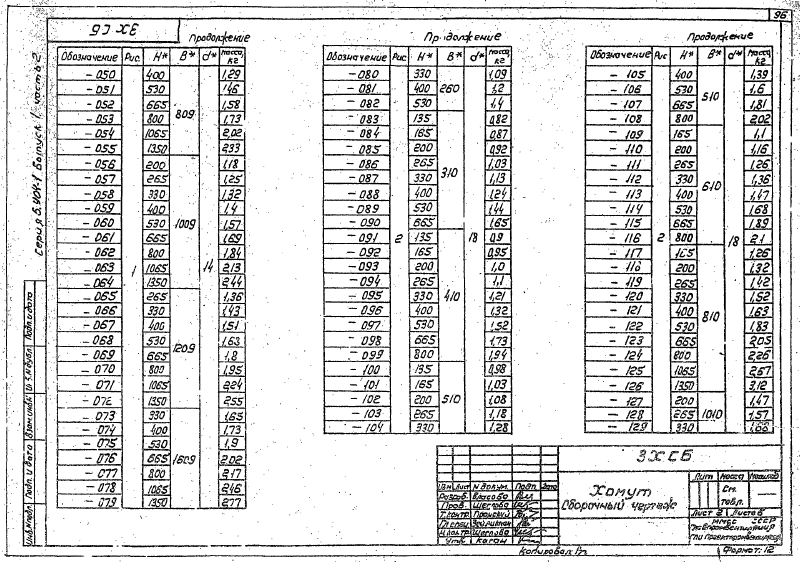 96
3ХСБ
Продолжение
Обозначение Рис. H* B* d* Масса, кг
- 050 400 1,29
- 051 530 1,46
- 052 665 1,58
- 053 800 809 1,73
- 054 1065 2,02
- 055 1350 2,33
- 056 200 1,18
- 057 265 1,25
- 058 330 1,32
- 059 400 1,4
- 060 530 1009 1,57
- 061 665 1,69
- 062 800 1,84
- 063 1 1065 14 2,13
- 064 1350 2,44
- 065 265 1,36
- 066 330 1,43
- 067 400 1,51
- 068 530 1209 1,63
- 069 665 1,8
- 070 800 1,95
- 071 1065 2,24
- 072 1350 2,55
- 073 330 1,65
- 074 400 1,73
- 075 530 1,9
- 076 665 1609 2,02
- 077 800 2,17
- 078 1065 2,46
- 079 1350 2,77
Продолжение
Обозначение Рис H* B* d* Масса, кг
- 080 330 1,09
- 081 400 260 1,2
- 082 530 1,4
- 083 135 0,82
- 084 165 0,87
- 085 200 0,92
- 086 265 310 1,03
- 087 330 1,13
- 088 400 1,24
- 089 530 1,44
- 090 665 1,65
- 091 2 135 18 0,9
- 092 165 0,95
- 093 200 1,0
- 094 265 1,1
- 095 330 410 1,21
- 096 400 1,32
- 097 530 1,52
- 098 665 1,73
- 099 800 1,94
- 100 135 0,98
- 101 165 1,03
- 102 200 510 1,08
- 103 265 1,18
- 104 330 1,28
Продолжение
Обозначение Рис H* B* d* Масса, кг
- 105 400 1,39
- 106 530 510 1,6
- 107 665 1,81
- 108 800 2,02
- 109 165 1,1
- 110 200 1,16
- 111 265 1,26
- 112 330 610 1,36
- 113 400 1,47
- 114 530 1,68
- 115 665 1,89
- 116 2 800 18 2,1
- 117 165 1,26
- 118 200 1,32
- 119 265 1,42
- 120 330 1,52
- 121 400 810 1,63
- 122 530 1,83
- 123 665 2,05
- 124 800 2,26
- 125 1065 2,67
- 126 1350 3,12
- 127 200 1,47
- 128 265 1010 1,57
- 129 330 1,68
Выпуск 1 часть 2
Подп. и дата
Взам.инв.№
Подп. и дата
Инв.№подл.
3ХСБ
Изм Лист № докум. Подп. Дата
Разраб. Власова
Пров. Щеглова
Т.контр.
Н.контр Щеглова
Утв. Коган
Хомут
Сборочный чертеж
Лит Масса Масштаб
См. табл. —
Лист 2 Листов
ММСС СССР
Копировал
Формат: 12